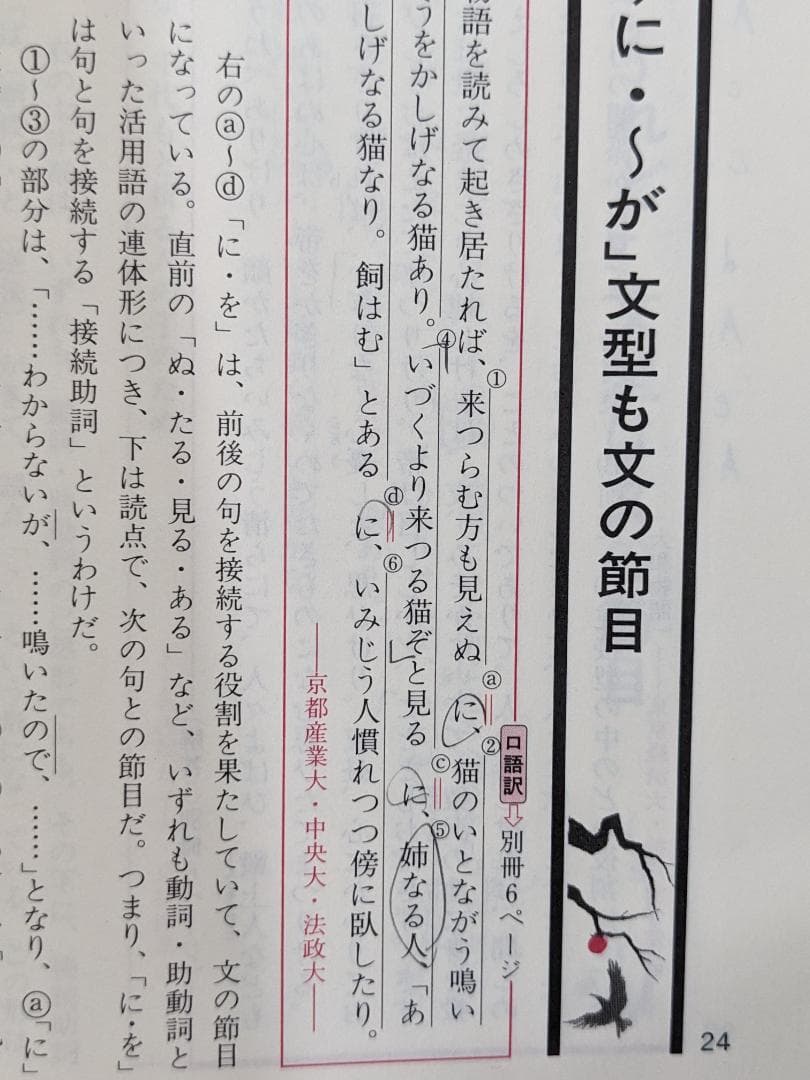 に・〜が」文型も文の節目
口語訳⇨別冊6ページ
物語を読みて起き居たれば、①来つらむ方も見えぬⓐに、②猫のいとながう鳴い
うをかしげなる猫あり。④いづくより来つる猫ぞと見るⓒに、⑤姉なる人、「あ
しげなる猫なり。飼はむ」とあるⓓに、⑥いみじう人慣れつつ傍に臥したり。
――京都産業大・中央大・法政大――
右のⓐ〜ⓓ「に・を」は、前後の句を接続する役割を果たしていて、文の節目
になっている。直前の「ぬ・たる・見る・ある」など、いずれも動詞・助動詞と
いった活用語の連体形につき、下は読点で、次の句との節目だ。つまり、「に・を」
は句と句を接続する「接続助詞」というわけだ。
①〜③の部分は、「……わからないが、……鳴いたので、……」となり、ⓐ「に」
24